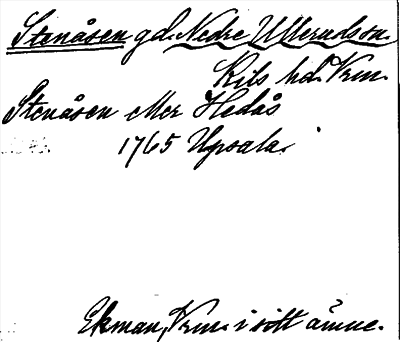 Stenåsen gd. Nedre Ullerud sn.
Kils hd. Vrm.
Stenåsen eller Hedås
1765 Upsala.
Ekman, Vrm. i sitt ämne.